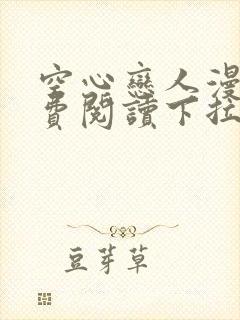 空心戀人漫
費閱讀下拉
豆芽草